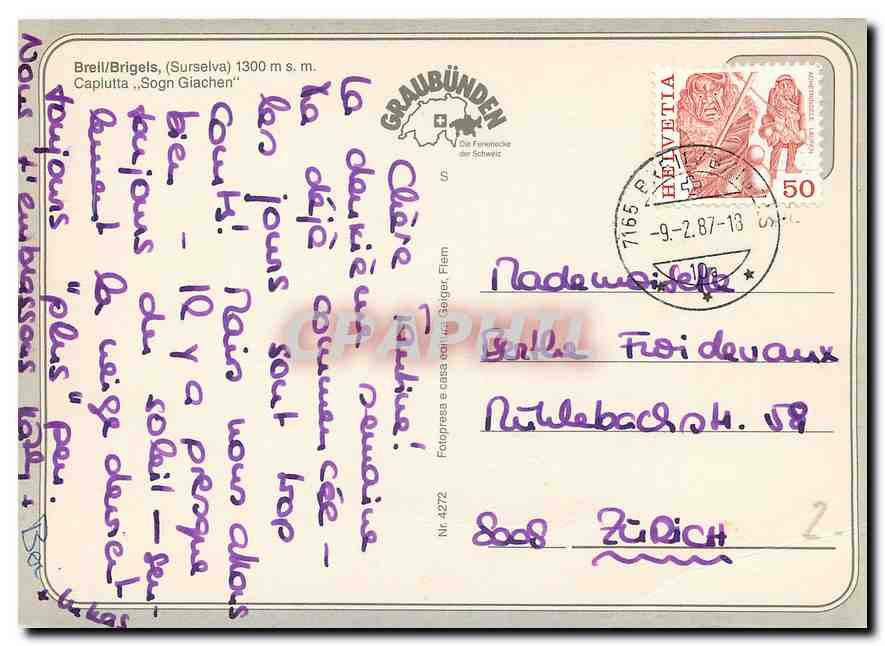 Breil/Brigels, (Surselva) 1300 m s. m.
Caplutta „Sogn Giachen"
GRAUBÜNDEN
Die Ferienecke
der Schweiz
S
HELVETIA
ACHETRINGELE LAUPEN
50
7165 BREIL/BRIGELS
-9.-2.87-18
Chère Tantine!
La dernière semaine
a déjà commencée -
les jours sont trop
courts! Mais nous allons
bien - Il y a presque
toujours du soleil - seu-
lement la neige devient
toujours "plus" peu.
Nous t'embrassons
+ Lukas
Nr. 4272 Fotopresa e casa editura Geiger, Flem
Mademoiselle
Berthe Froidevaux
Mühlebachstr. 59
8008 ZÜRICH
2.-
CPAPHIL